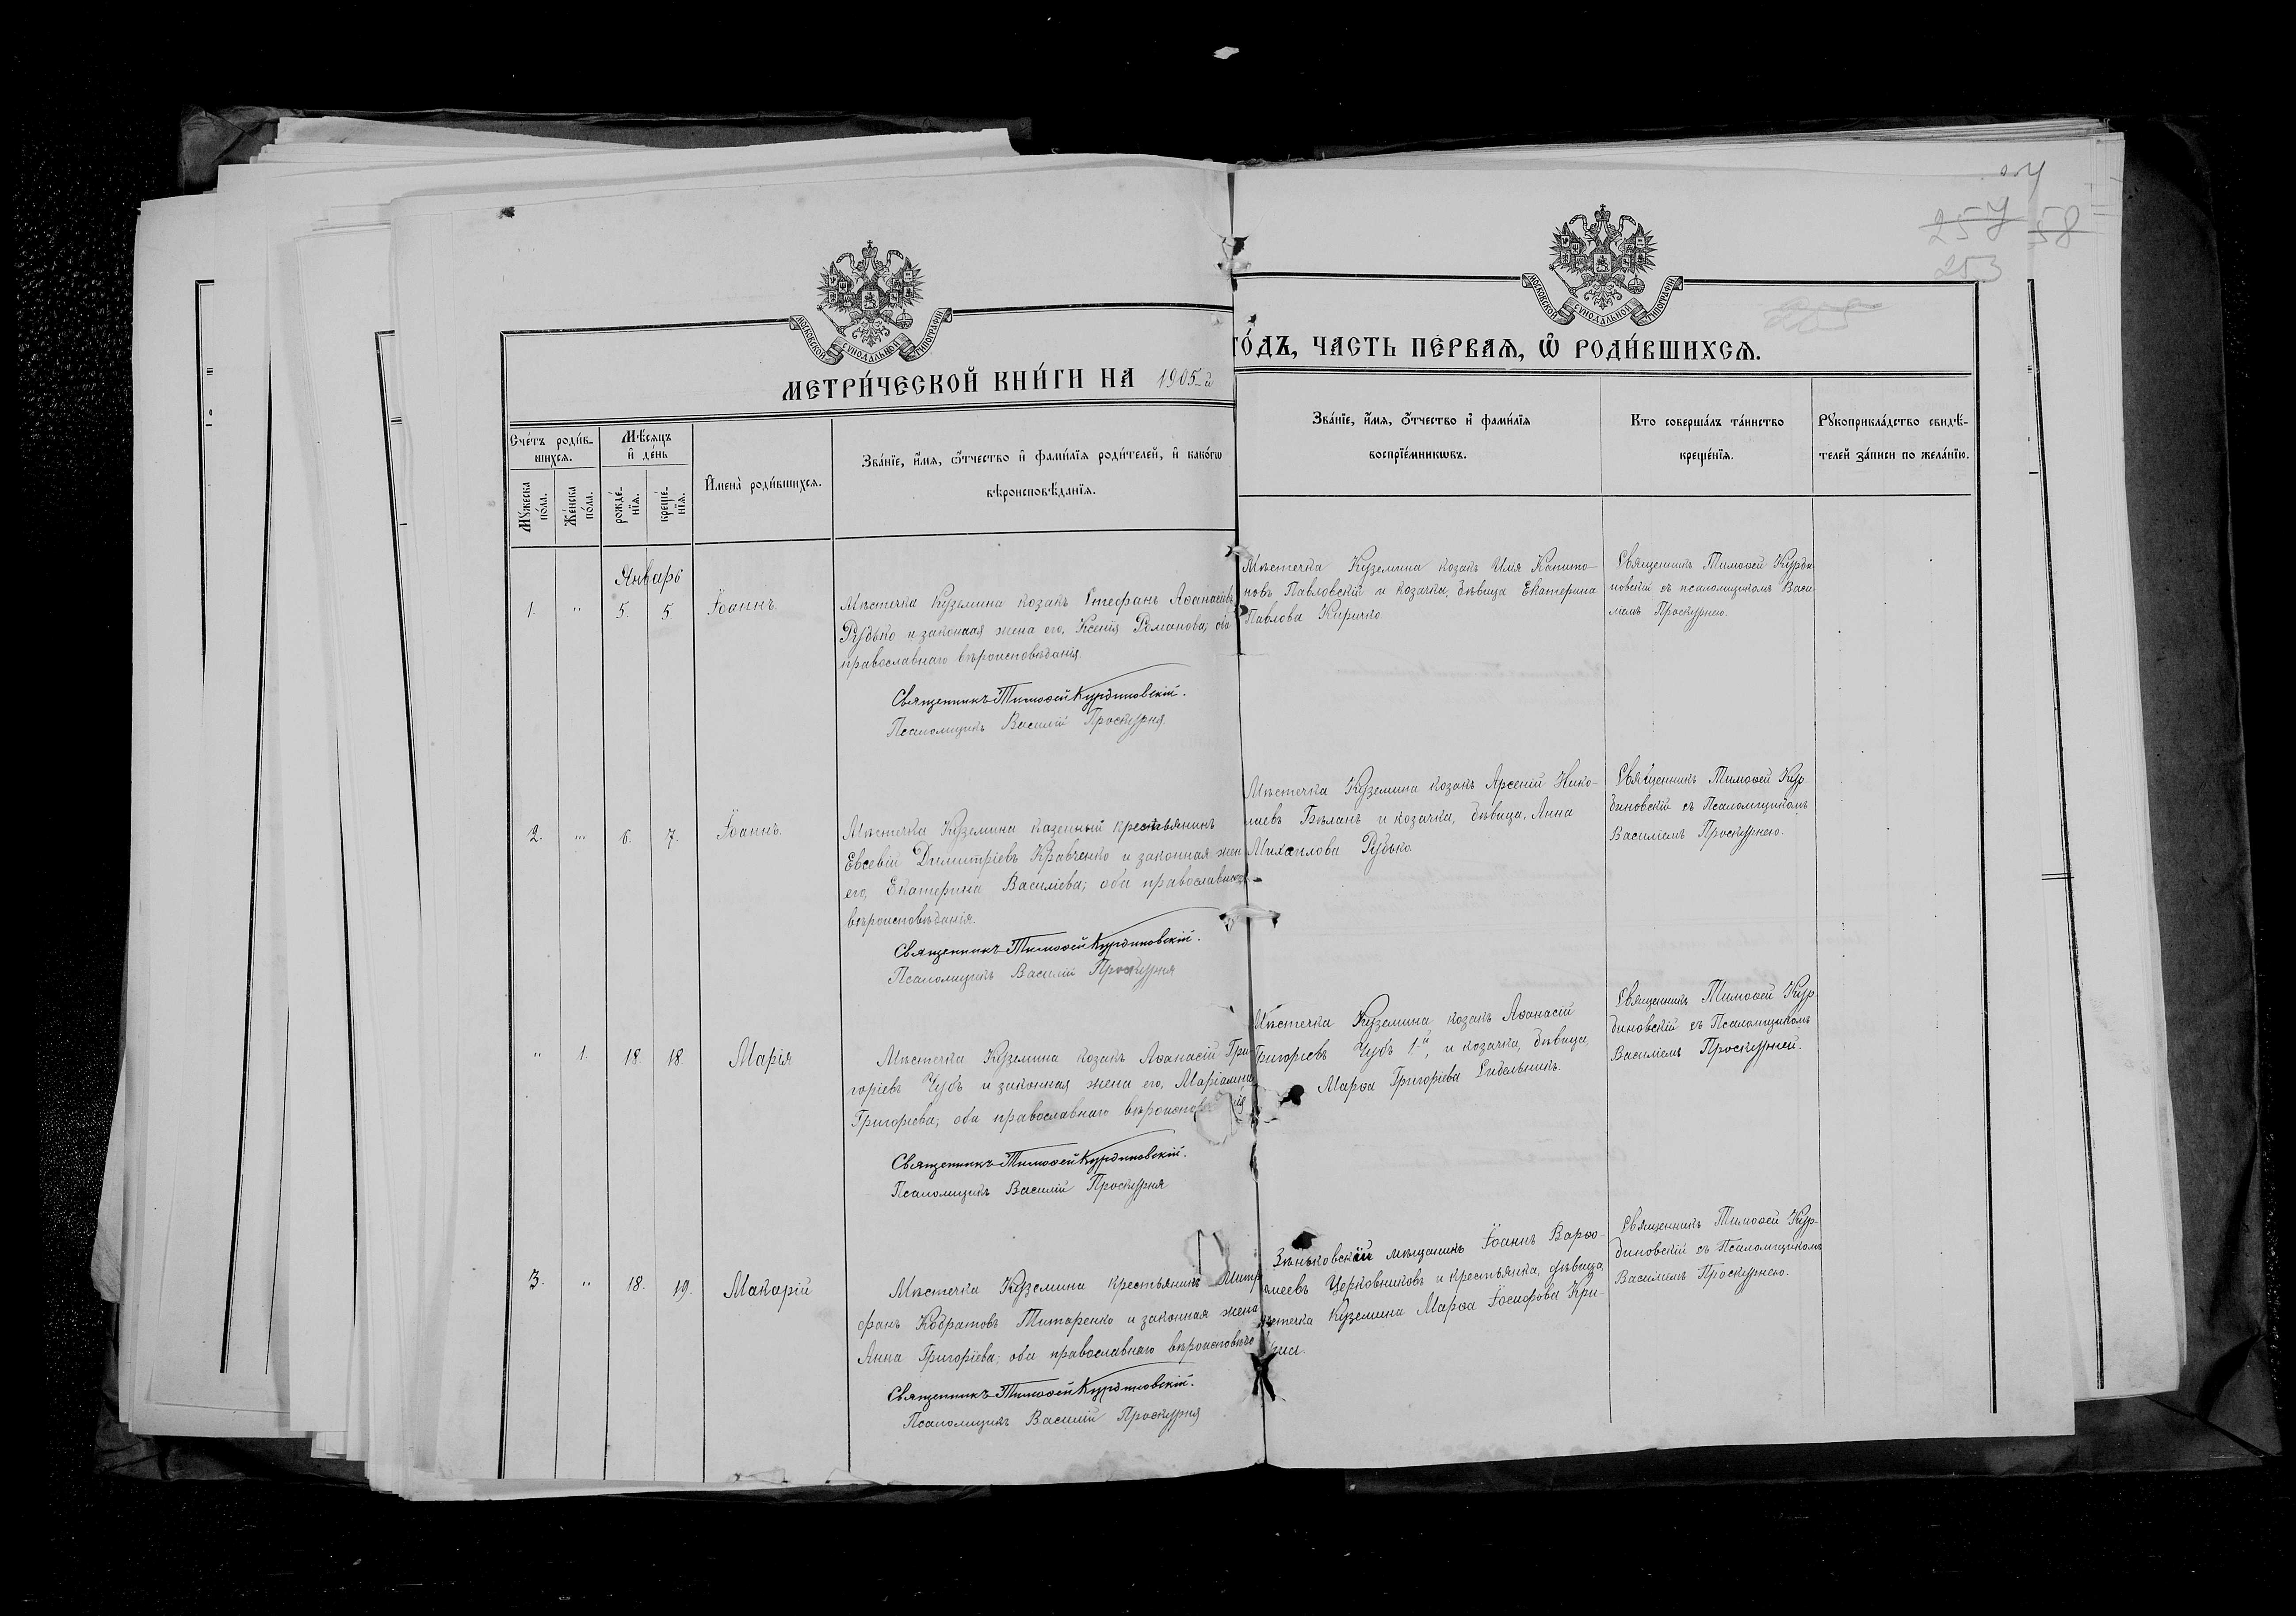 254
257 58
253
МОСКОВСКОЙ СѴНОДАЛЬНОЙ ТИПОГРАФІИ
МОСКОВСКОЙ СѴНОДАЛЬНОЙ ТИПОГРАФІИ
МЕТРИ́ЧЕСКОЙ КНИ́ГИ НА 1905-й
ГО́ДЪ, ЧАСТЬ ПЕ́РВАѦ, Ѡ҆ РОДИ́ВШИХСѦ.
Сче́тъ роди́в-
шихсѧ.
Мꙋ́жеска по́ла.
Же́нска по́ла.
Мѣ́сѧцъ
и҆ де́нь
рожде́-
нїѧ.
креще́-
нїѧ.
И҆мена̀ роди́вшихсѧ.
Зва́нїе, и҆́мѧ, ѻ҆́тчество и҆ фами́лїѧ роди́телей, и҆ како́гѡ
вѣроисповѣ́данїѧ.
Зва́нїе, и҆́мѧ, ѻ҆́тчество и҆ фами́лїѧ
воспрїе́мникѡвъ.
Кто соверша́лъ та́инство
креще́нїѧ.
Рꙋкоприкла́дство свидѣ́-
телей за́писи по жела́нїю.
Январь
1. " 5. 5. Іоаннъ.
Мѣстечка Куземина козакъ Стефанъ Аѳанасіевъ
Рудько и законная жена его, Ксенія Романова; оба
православнаго вѣроисповѣданія.
Священникъ Тимоѳей Курдиновскій.
Псаломщикъ Василій Проскурня.
Мѣстечка Куземина козакъ Илія Капито-
новъ Павловскій и козачка, дѣвица Екатерина
Павлова Киричко.
Священникъ Тимоѳей Курди-
новскій съ псаломщикомъ Васи-
ліемъ Проскурнею.
2. " 6. 7. Іоаннъ.
Мѣстечка Куземина казенный крестьянинъ
Евсевій Димитріевъ Кравченко и законная жен
его, Екатерина Василіева; оба православнаго
вѣроисповѣданія.
Священникъ Тимоѳей Курдиновскій.
Псаломщикъ Василій Проскурня
Мѣстечка Куземина козакъ Арсеній Нико-
лаевъ Бѣланъ и козачка, дѣвица, Анна
Михаилова Рудько.
Священникъ Тимоѳей Кур-
диновскій съ Псаломщикомъ
Василіемъ Проскурнею.
" 1. 18. 18. Марія
Мѣстечка Куземина козакъ Аѳанасій Гри-
горіевъ Чубъ и законная жена его, Маріамна
Григоріева; оба православнаго
Священникъ Тимоѳей Курдиновскій.
Псаломщикъ Василій Проскурня
Мѣстечка Куземина козакъ Аѳанасій
Григоріевъ Чубъ 1й, и козачка, дѣвица,
Марѳа Григоріева Сидельникъ.
Священникъ Тимоѳей Кур-
диновскій съ Псаломщикомъ
Василіемъ Проскурней.
3. " 18. 19. Макарій
Мѣстечка Куземина крестьянинъ Митр
фанъ Кодратовъ Титаренко и законная жена
Анна Григоріева; оба православнаго
Священникъ Тимоѳей Курдиновскій.
Псаломщикъ Василій Проскурня
Зѣньковскій мѣщанинъ Іоаннъ Варѳо-
ломеевъ Церковниковъ и крестьянка, дѣвица,
мѣстечка Куземина Марѳа Іосифова Кри-
Священникъ Тимоѳей Кур-
диновскій съ Псаломщикомъ
Василіемъ Проскурнею.